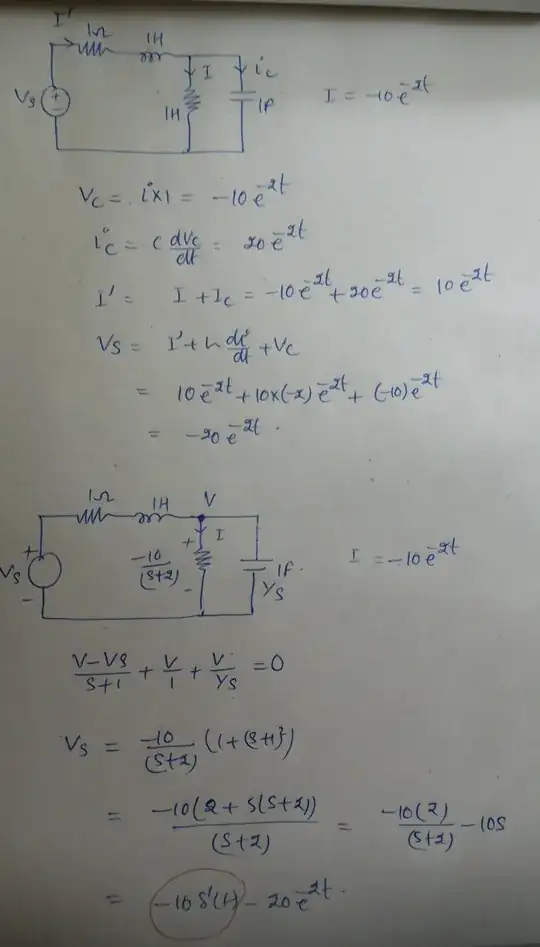 I'
1Ω 1H
I ic
Vs + - 1H 1F I = -10e^-2t
Vc = i×1 = -10e^-2t
ic = C dVc/dt = 20e^-2t
I' = I + Ic = -10e^-2t + 20e^-2t = 10e^-2t
Vs = I' + L di'/dt + Vc
= 10e^-2t + 10×(-2)e^-2t + (-10)e^-2t
= -20e^-2t.
1Ω 1H V
+ I
Vs + - -10/(s+2) - 1F. 1/s I = -10e^-2t
V-Vs/s+1 + V/1 + V/1/s = 0
Vs = -10/(s+2) (1+(s+1)²)
= -10(2+s(s+2))/(s+2) = -10(2)/(s+2) - 10s
= -10δ'(t) - 20e^-2t.